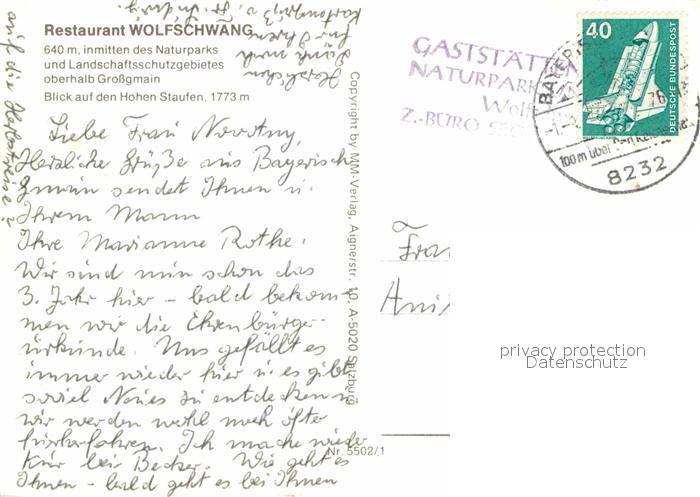 Restaurant WOLFSCHWANG
640 m, inmitten des Naturparks
und Landschaftsschutzgebietes
oberhalb Großgmain
Blick auf den Hohen Staufen, 1773 m
Liebe Frau Novotny,
Herzliche Grüße aus Bayerisch
Gmain sendet Ihnen u.
Ihrem Mann
Ihre Marianne Rothe.
Wir sind nun schon das
3. Jahr hier – bald bekom-
men wir die Ehrenbürger-
urkunde. Uns gefällt es
immer wieder hier u. es gibt
soviel Neues zu entdecken u.
wir werden wohl noch öfter
hierherfahren. Ich mache wieder
Kur bei Becker. Wie geht es
Ihnen – bald geht es bei Ihnen
auf die Herbstreise?
Herzlichen
Dank noch
für Ihren
Kartengruß
Copyright by MM-Verlag, Aignerstr. 10, A-5020 Salzburg
Nr. 5502/1
GASTSTÄTTE
NATURPARK
Wolf
Z.-BÜRO
40
DEUTSCHE BUNDESPOST
BAYER
100m über
8232
Frau
Ani
privacy protection
Datenschutz